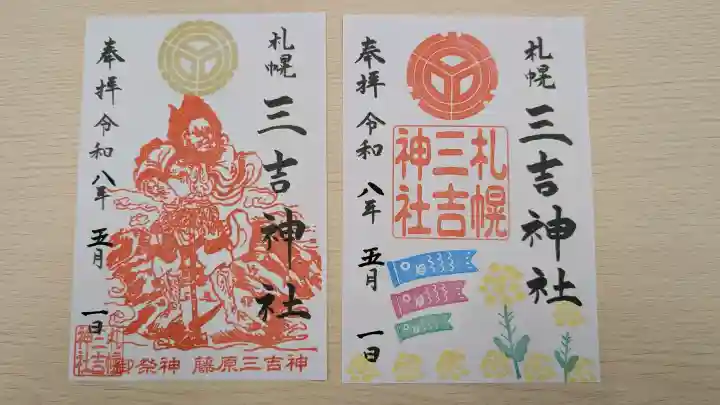 札幌 三吉神社
奉拝 令和八年 五月 一日
札幌
三吉
神社
御祭神 藤原三吉神
札幌 三吉神社
札幌
三吉
神社
奉拝 令和 八年 五月 一日